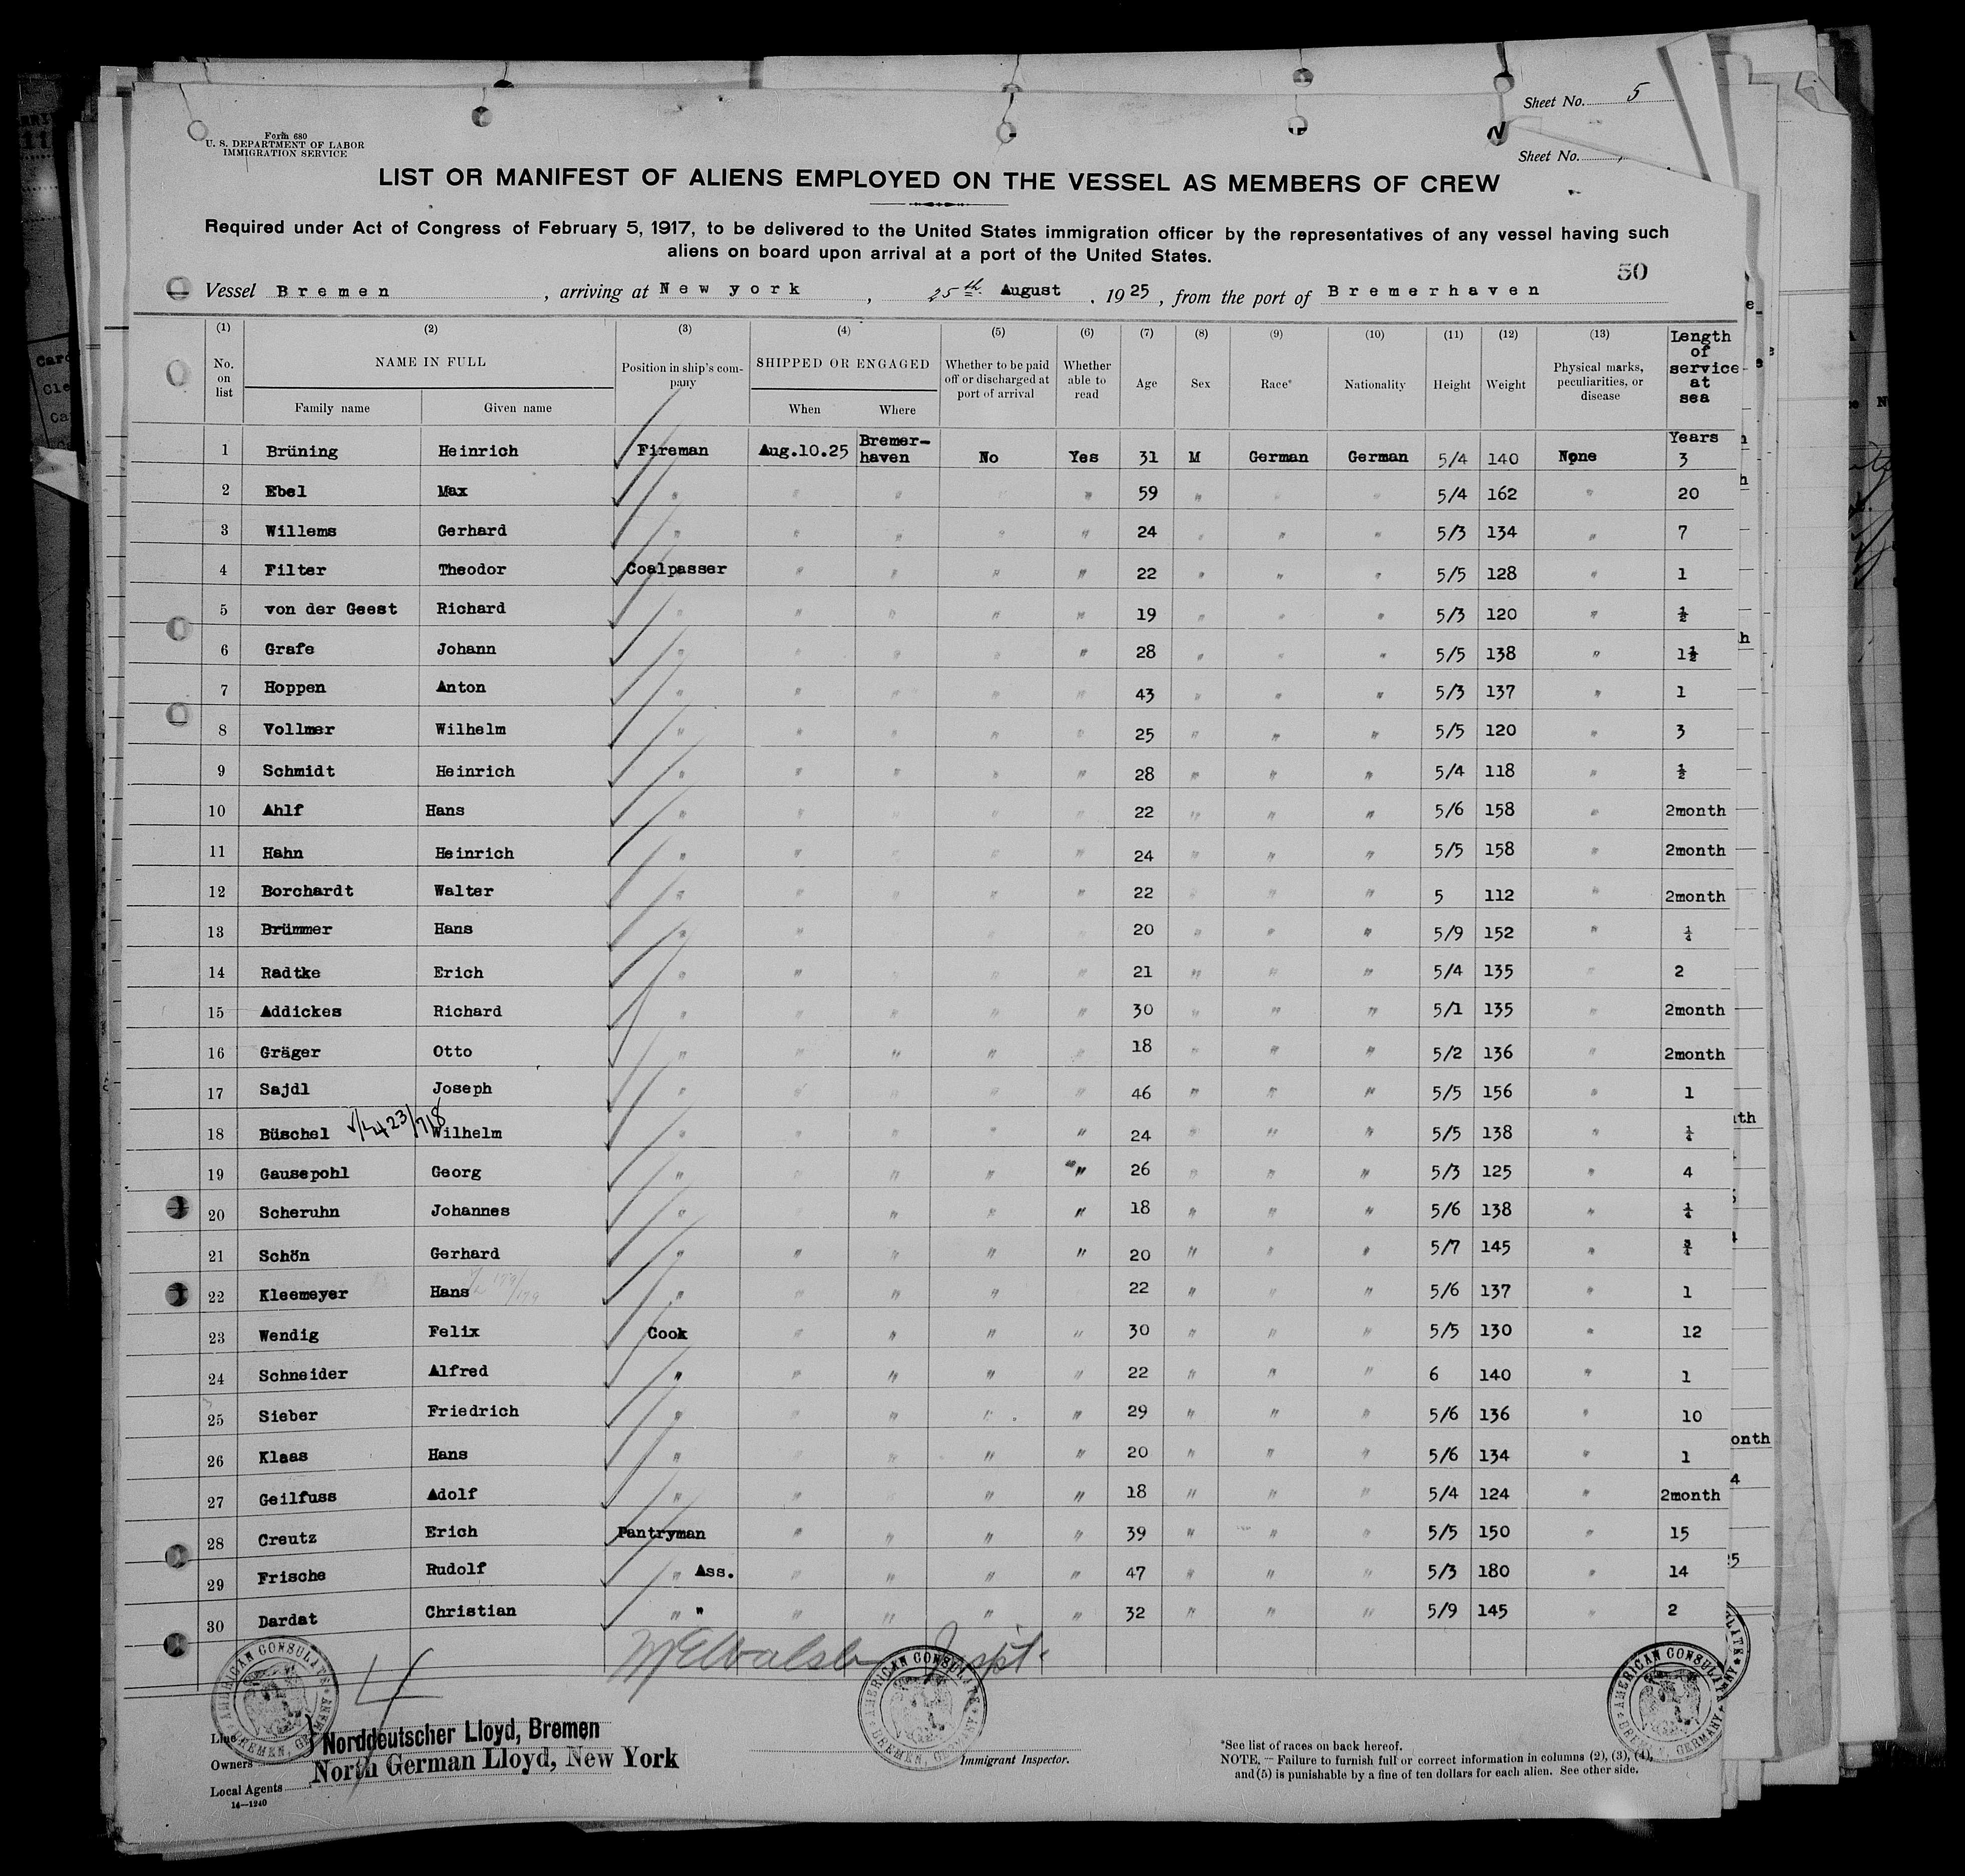 Sheet No. 5
Form 680
U. S. DEPARTMENT OF LABOR
IMMIGRATION SERVICE
Sheet No.
LIST OR MANIFEST OF ALIENS EMPLOYED ON THE VESSEL AS MEMBERS OF CREW
Required under Act of Congress of February 5, 1917, to be delivered to the United States immigration officer by the representatives of any vessel having such
aliens on board upon arrival at a port of the United States.
50
Vessel Bremen, arriving at New york, 25th. August, 1925, from the port of Bremerhaven
(1) (2) (3) (4) (5) (6) (7) (8) (9) (10) (11) (12) (13)
No. on list NAME IN FULL Family name Given name Position in ship's company SHIPPED OR ENGAGED When Where Whether to be paid off or discharged at port of arrival Whether able to read Age Sex Race* Nationality Height Weight Physical marks, peculiarities, or disease Length of service at sea
1 Brüning Heinrich Fireman Aug.10.25 Bremerhaven No Yes 31 M German German 5/4 140 None Years 3
2 Ebel Max " " " " " 59 " " " 5/4 162 " 20
3 Willems Gerhard " " " " " 24 " " " 5/3 134 " 7
4 Filter Theodor Coalpasser " " " " 22 " " " 5/5 128 " 1
5 von der Geest Richard " " " " " 19 " " " 5/3 120 " ½
6 Grafe Johann " " " " " 28 " " " 5/5 138 " 1½
7 Hoppen Anton " " " " " 43 " " " 5/3 137 " 1
8 Vollmer Wilhelm " " " " " 25 " " " 5/5 120 " 3
9 Schmidt Heinrich " " " " " 28 " " " 5/4 118 " ½
10 Ahlf Hans " " " " " 22 " " " 5/6 158 " 2month
11 Hahn Heinrich " " " " " 24 " " " 5/5 158 " 2month
12 Borchardt Walter " " " " " 22 " " " 5 112 " 2month
13 Brümmer Hans " " " " " 20 " " " 5/9 152 " ¼
14 Radtke Erich " " " " " 21 " " " 5/4 135 " 2
15 Addickes Richard " " " " " 30 " " " 5/1 135 " 2month
16 Gräger Otto " " " " " 18 " " " 5/2 136 " 2month
17 Sajdl Joseph " " " " " 46 " " " 5/5 156 " 1
18 Büschel Wilhelm " " " " " 24 " " " 5/5 138 " ¼
19 Gausepohl Georg " " " " " 26 " " " 5/3 125 " 4
20 Scheruhn Johannes " " " " " 18 " " " 5/6 138 " ¼
21 Schön Gerhard " " " " " 20 " " " 5/7 145 " ¾
22 Kleemeyer Hans " " " " 22 " " " 5/6 137 " 1
23 Wendig Felix Cook " " " " 30 " " " 5/5 130 " 12
24 Schneider Alfred " " " " " 22 " " " 6 140 " 1
25 Sieber Friedrich " " " " " 29 " " " 5/6 136 " 10
26 Klaas Hans " " " " " 20 " " " 5/6 134 " 1
27 Geilfuss Adolf " " " " " 18 " " " 5/4 124 " 2month
28 Creutz Erich Pantryman " " " " 39 " " " 5/5 150 " 15
29 Frische Rudolf " Ass. " " " " 47 " " " 5/3 180 " 14
30 Dardat Christian " " " " " " 32 " " " 5/9 145 " 2
AMERICAN CONSULATE BREMEN, GERMANY
AMERICAN CONSULATE BREMEN, GERMANY
AMERICAN CONSULATE BREMEN, GERMANY
Line Norddeutscher Lloyd, Bremen
Owners North German Lloyd, New York
Local Agents
14—1240
Immigrant Inspector.
*See list of races on back hereof.
NOTE. — Failure to furnish full or correct information in columns (2), (3), (4),
and (5) is punishable by a fine of ten dollars for each alien. See other side.